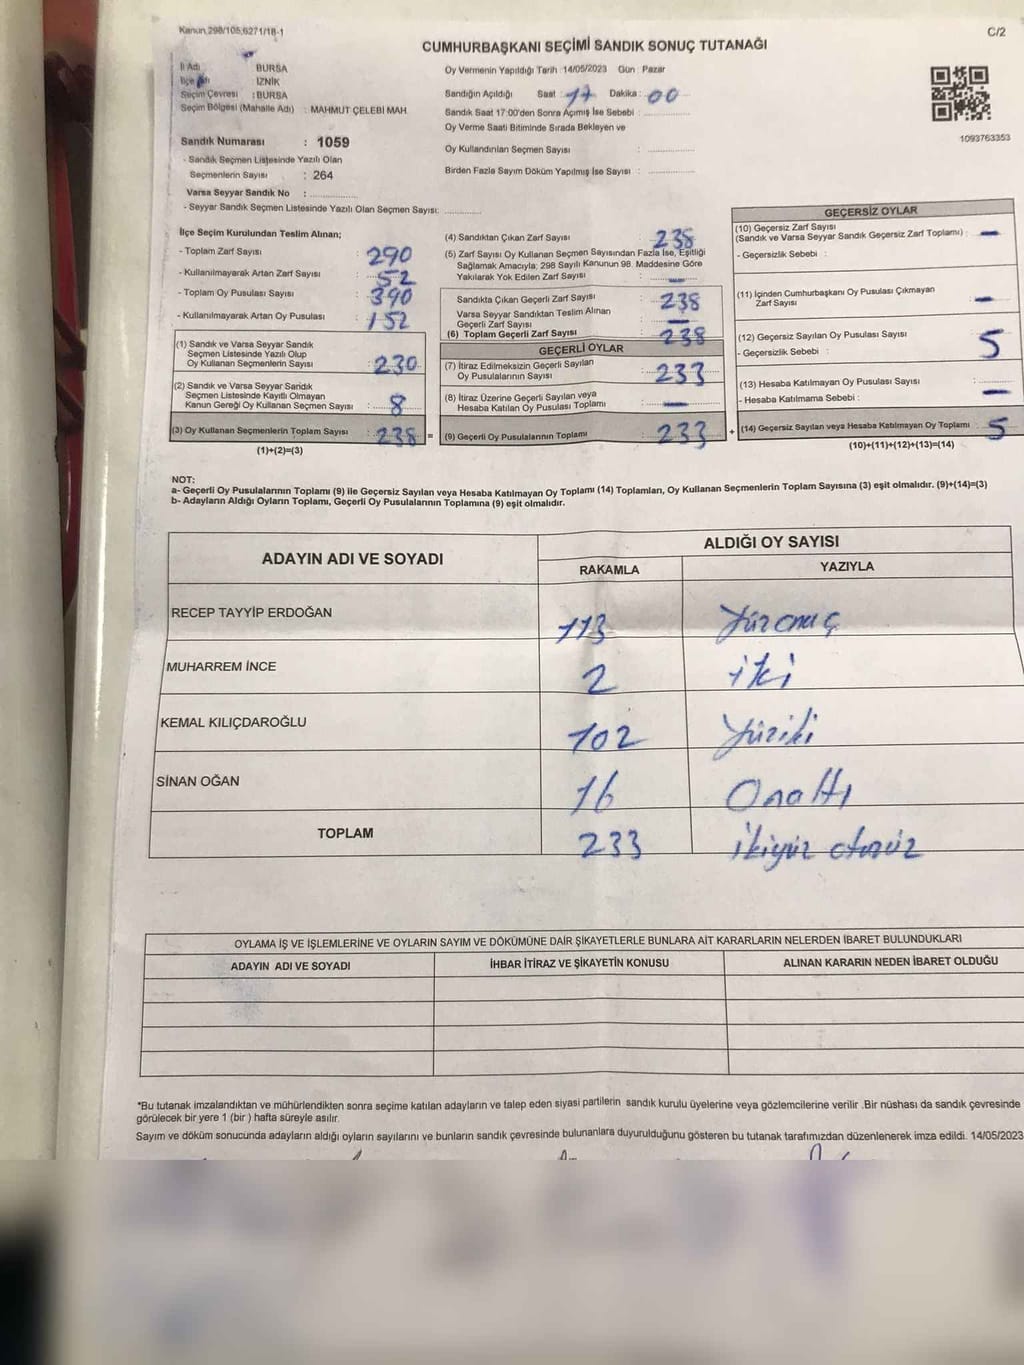 Kanun,298/105,6271/18-1
C/2
CUMHURBAŞKANI SEÇİMİ SANDIK SONUÇ TUTANAĞI
İl Adı : BURSA
İlçe : İZNİK
Seçim Çevresi : BURSA
Seçim Bölgesi (Mahalle Adı) : MAHMUT ÇELEBİ MAH.
Sandık Numarası : 1059
- Sandık Seçmen Listesinde Yazılı Olan
Seçmenlerin Sayısı : 264
Varsa Seyyar Sandık No :
- Seyyar Sandık Seçmen Listesinde Yazılı Olan Seçmen Sayısı:
Oy Vermenin Yapıldığı Tarih :14/05/2023 Gün : Pazar
Sandığın Açıldığı Saat : 17 Dakika : 00
Sandık Saat 17:00'den Sonra Açımış İse Sebebi :
Oy Verme Saati Bitiminde Sırada Bekleyen ve
Oy Kullandırılan Seçmen Sayısı :
Birden Fazla Sayım Döküm Yapılmış İse Sayısı :
1093763353
İlçe Seçim Kurulundan Teslim Alınan;
- Toplam Zarf Sayısı : 290
- Kullanılmayarak Artan Zarf Sayısı : 52
- Toplam Oy Pusulası Sayısı : 390
- Kullanılmayarak Artan Oy Pusulası : 152
(1) Sandık ve Varsa Seyyar Sandık
Seçmen Listesinde Yazılı Olup
Oy Kullanan Seçmenlerin Sayısı : 230
(2) Sandık ve Varsa Seyyar Sandık
Seçmen Listesinde Kayıtlı Olmayan
Kanun Gereği Oy Kullanan Seçmen Sayısı : 8
(3) Oy Kullanan Seçmenlerin Toplam Sayısı : 238 =
(1)+(2)=(3)
(4) Sandıktan Çıkan Zarf Sayısı : 238
(5) Zarf Sayısı Oy Kullanan Seçmen Sayısından Fazla İse, Eşitliği
Sağlamak Amacıyla; 298 Sayılı Kanunun 98. Maddesine Göre
Yakılarak Yok Edilen Zarf Sayısı : —
Sandıkta Çıkan Geçerli Zarf Sayısı : 238
Varsa Seyyar Sandıktan Teslim Alınan
Geçerli Zarf Sayısı : —
(6) Toplam Geçerli Zarf Sayısı : 238
GEÇERLİ OYLAR
(7) İtiraz Edilmeksizin Geçerli Sayılan
Oy Pusulalarının Sayısı : 233
(8) İtiraz Üzerine Geçerli Sayılan veya
Hesaba Katılan Oy Pusulası Toplamı : —
(9) Geçerli Oy Pusulalarının Toplamı : 233 +
GEÇERSİZ OYLAR
(10) Geçersiz Zarf Sayısı
(Sandık ve Varsa Seyyar Sandık Geçersiz Zarf Toplamı) : —
- Geçersizlik Sebebi :
(11) İçinden Cumhurbaşkanı Oy Pusulası Çıkmayan
Zarf Sayısı : —
(12) Geçersiz Sayılan Oy Pusulası Sayısı : 5
- Geçersizlik Sebebi :
(13) Hesaba Katılmayan Oy Pusulası Sayısı : —
- Hesaba Katılmama Sebebi :
(14) Geçersiz Sayılan veya Hesaba Katılmayan Oy Toplamı : 5
(10)+(11)+(12)+(13)=(14)
NOT:
a- Geçerli Oy Pusulalarının Toplamı (9) ile Geçersiz Sayılan veya Hesaba Katılmayan Oy Toplamı (14) Toplamları, Oy Kullanan Seçmenlerin Toplam Sayısına (3) eşit olmalıdır. (9)+(14)=(3)
b- Adayların Aldığı Oyların Toplamı, Geçerli Oy Pusulalarının Toplamına (9) eşit olmalıdır.
ADAYIN ADI VE SOYADI
ALDIĞI OY SAYISI
RAKAMLA YAZIYLA
RECEP TAYYİP ERDOĞAN 113 Yüzonüç
MUHARREM İNCE 2 iki
KEMAL KILIÇDAROĞLU 102 Yüziki
SİNAN OĞAN 16 Onaltı
TOPLAM 233 ikiyüz
OYLAMA İŞ VE İŞLEMLERİNE VE OYLARIN SAYIM VE DÖKÜMÜNE DAİR ŞİKAYETLERLE BUNLARA AİT KARARLARIN NELERDEN İBARET BULUNDUKLARI
ADAYIN ADI VE SOYADI İHBAR İTİRAZ VE ŞİKAYETİN KONUSU ALINAN KARARIN NEDEN İBARET OLDUĞU
*Bu tutanak imzalandıktan ve mühürlendikten sonra seçime katılan adayların ve talep eden siyasi partilerin sandık kurulu üyelerine veya gözlemcilerine verilir .Bir nüshası da sandık çevresinde
görülecek bir yere 1 (bir ) hafta süreyle asılır.
Sayım ve döküm sonucunda adayların aldığı oyların sayılarını ve bunların sandık çevresinde bulunanlara duyurulduğunu gösteren bu tutanak tarafımızdan düzenlenerek imza edildi. 14/05/2023